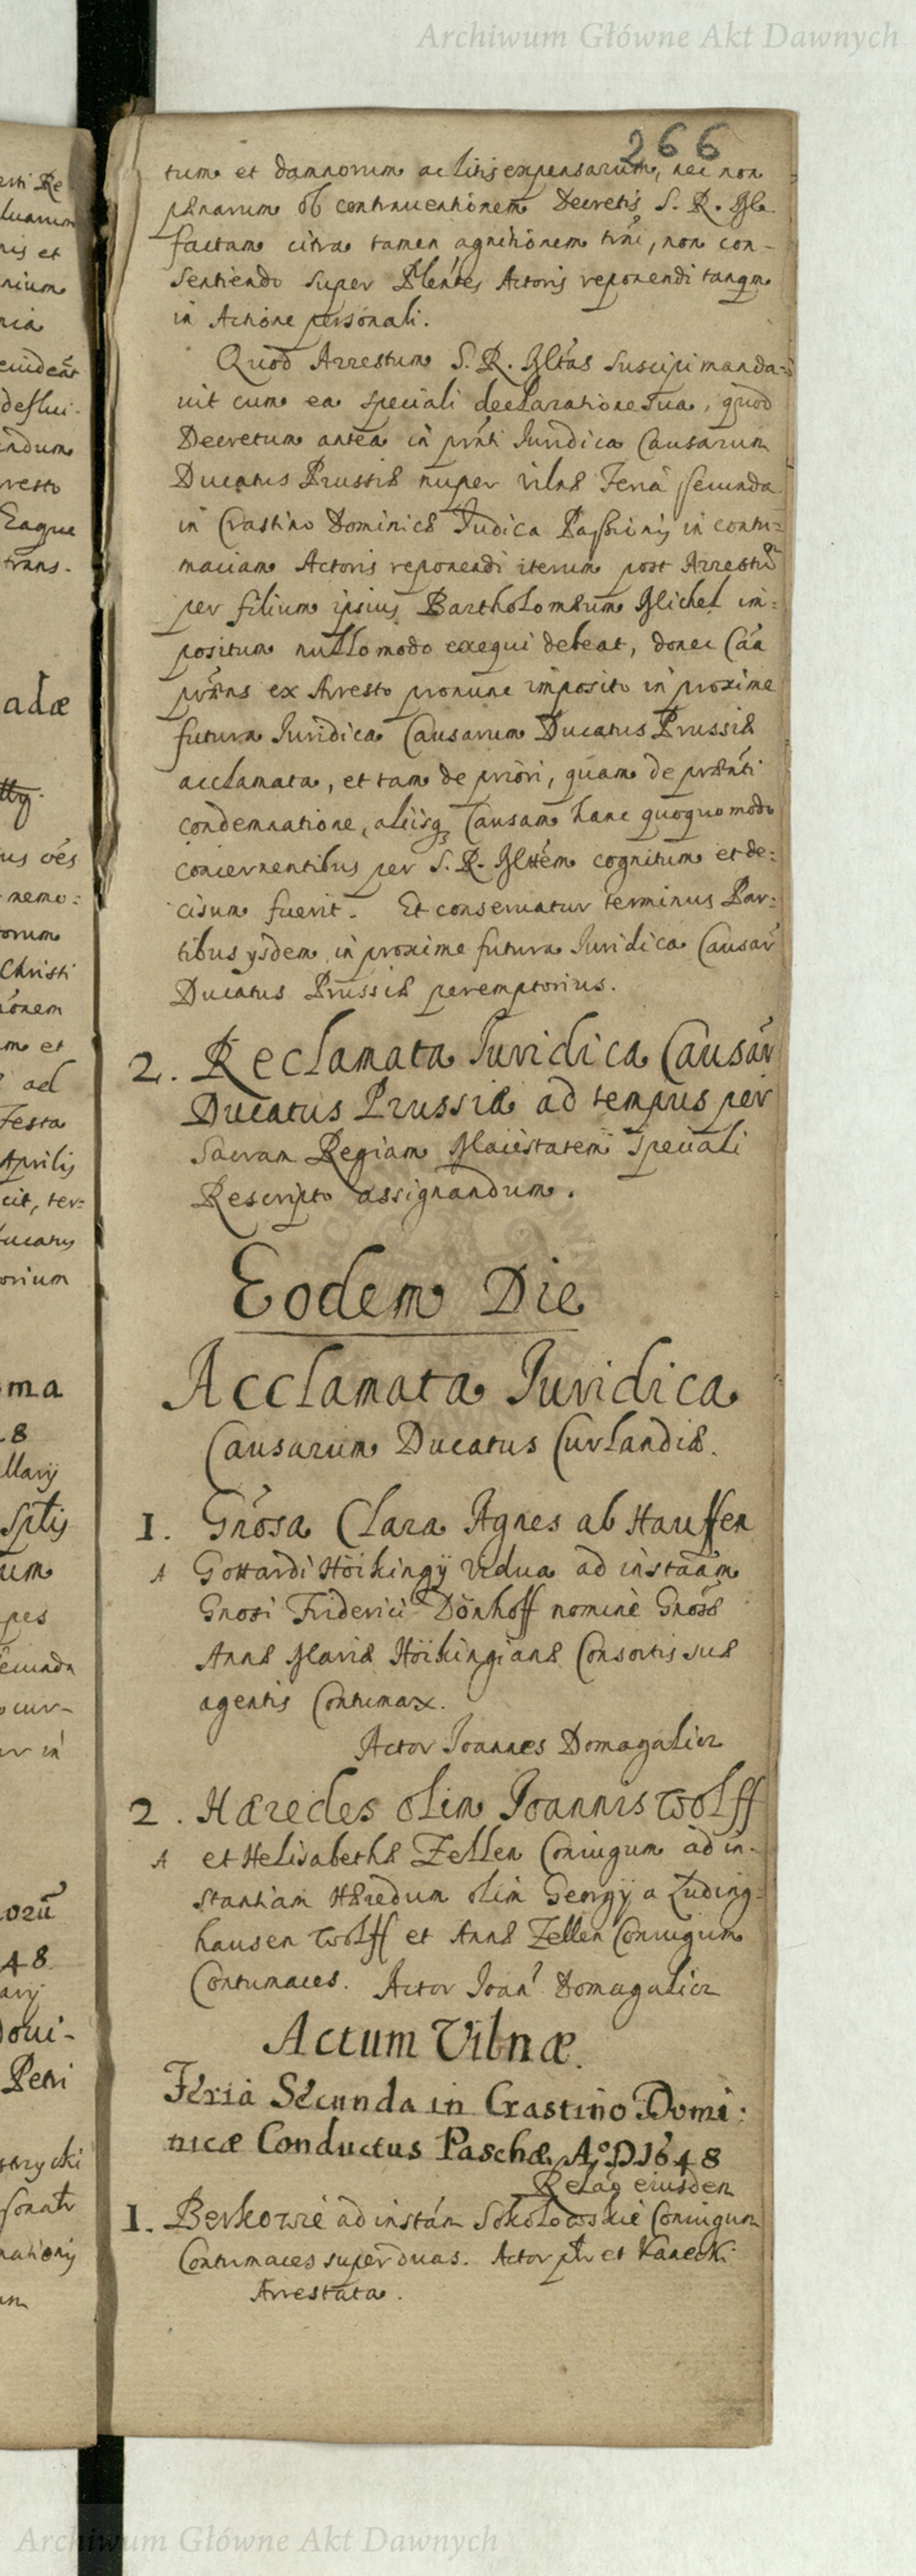 Archiwum Główne Akt Dawnych
266
tum et damnorum ac litis expensarum, nec non
pænarum ob contravenhonem Decretis S. R. Mta
factam citra tamen agnitionem trni, non con-
sentiendo super Actoris reponendi tanqm
in Actione personali.
Quod Arrestum S. R. Mltas suscipi manda-
vit cum ea speciali declaratione sua, quod
Decretum antea in pnti Juridica Causarum
Ducatus Prussiæ nuper Vilnæ Feria secunda
in Crastino Dominicæ Judica Passionis in contu-
maciam Actoris reponendi iterum post Arrestū
per filium ipsius Bartholomæum Michel im-
positum nullo modo exequi debeat, donec Cāa
præns ex Arresto pronunc imposito in proxime
futura Juridica Causarum Ducatus Prussiæ
acclamata, et tam de priori, quam de prænti
condemnatione, aliisq; Causam hanc quoquo modo
concernentibus per S. R. Mttem cognitum et de-
cisum fuerit. Et conservatur terminus Par-
tibus ysdem in proxime futura Juridica Causar
Ducatus Prussiæ peremptorius.
2. Reclamata Juridica Causar
Ducatus Prussiæ ad tempus per
Sacram Regiam Maiestatem speciali
Rescripto assignandum.
Eodem Die
Acclamata Juridica
Causarum Ducatus Curlandiæ.
1. Gnosa Clara Agnes ab Hauffen
A Gottardi Höikingÿ vidua ad instaam
Gnosi Friderici Dönhoff nomine Gnosæ
Annæ Mariæ Höikingianæ Consortis suæ
agentis Contumax.
Actor Joannes Domagalicz
2. Hæredes olim Joannis Wolff
A et Helisabethæ Zellen Coniugum ad in-
stantiam Hæredum olim Georgÿ a Luding-
hausen Wolff et Annæ Zellen Coniugum
Contumaces. Actor Joan Domagalicz
Actum Vilnæ.
Feria Secunda in Crastino Domi:
nicæ Conductus Paschæ A°D 1648
Relāq eiusdem
1. Berkowie ad instān Sokolowskie Coniugum
Contumaces super duas. Actor et Kanecki
Arrestata.
Archiwum Główne Akt Dawnych